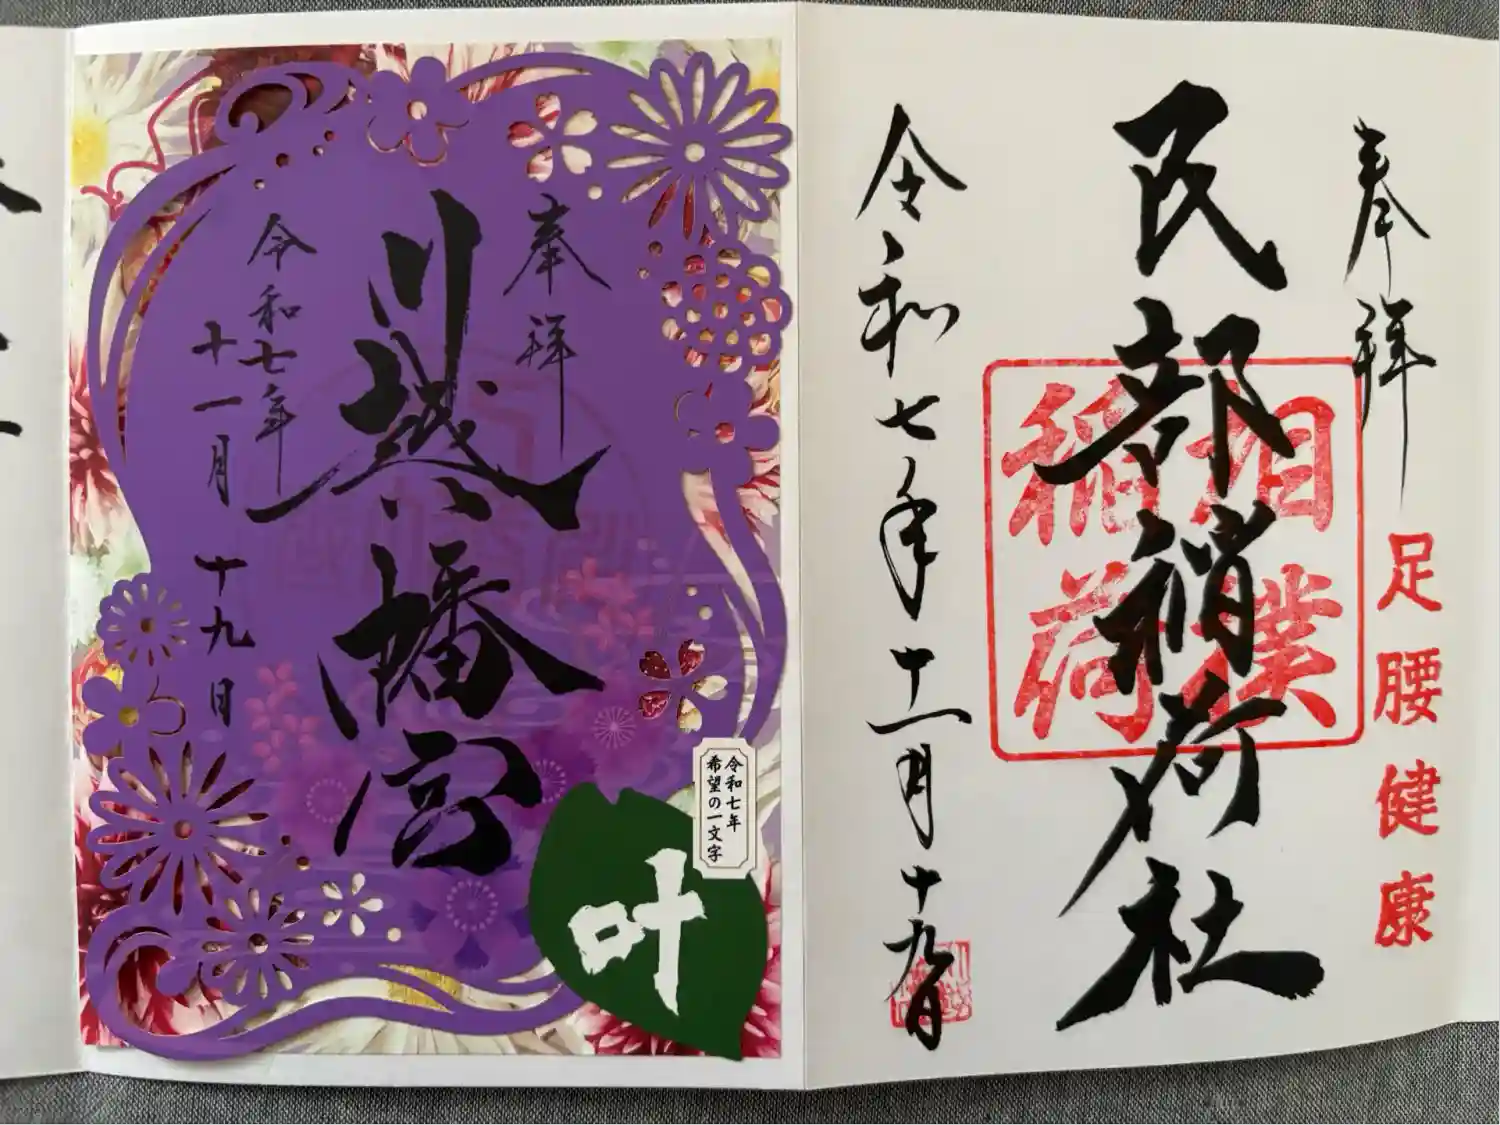 奉拝
民部稲荷社
相撲
稲荷
足腰健康
令和七年十一月十九日
奉拝
川越八幡宮
令和七年
十一月十九日
令和七年
希望の一文字
叶